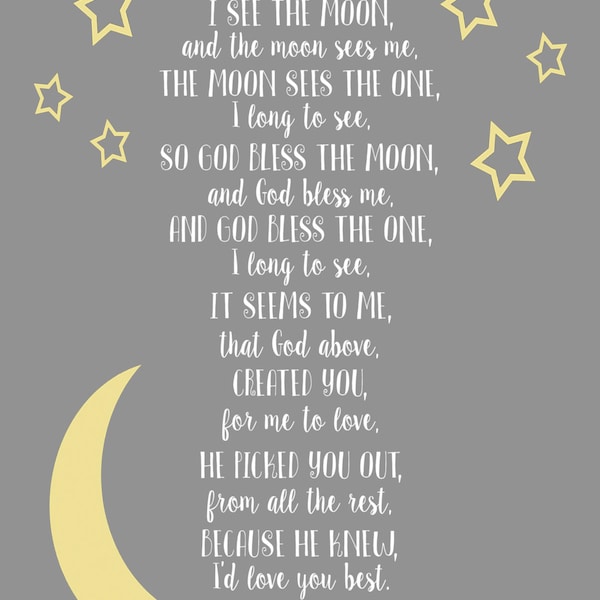 I SEE THE MOON,
and the moon sees me,
THE MOON SEES THE ONE,
I long to see,
SO GOD BLESS THE MOON,
and God bless me,
AND GOD BLESS THE ONE,
I long to see,
IT SEEMS TO ME,
that God above,
CREATED YOU,
for me to love,
HE PICKED YOU OUT,
from all the rest,
BECAUSE HE KNEW,
I'd love you best.